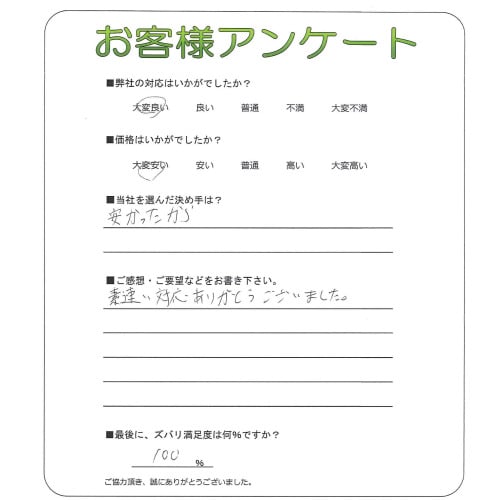 お客様アンケート
■弊社の対応はいかがでしたか?
大変良い 良い 普通 不満 大変不満
■価格はいかがでしたか?
大変安い 安い 普通 高い 大変高い
■当社を選んだ決め手は?
安かったから
■ご感想・ご要望などをお書き下さい。
素速い対応ありがとうございました。
■最後に、ズバリ満足度は何%ですか?
100 %
ご協力頂き、誠にありがとうございました。